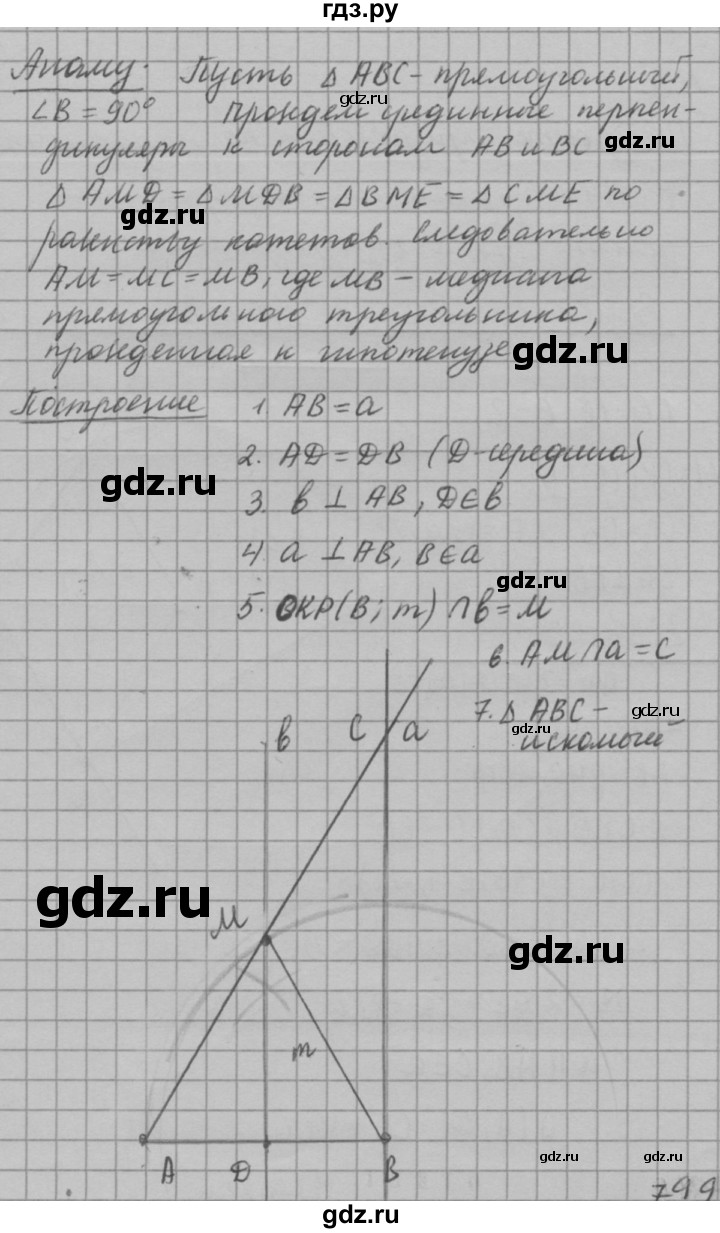 гдз.ру
Анализ. Пусть △ ABC - прямоугольный,
∠B = 90° Проидем срединные перпен-
gdz.ru
дикуляры к сторонам AB и BC
gdz.ru
△ AMD = △ MDB = △ BME = △ CME по
gdz.ru
равенству катетов. Следовательно
AM = MC = MB, где MB - медиана
прямоугольного треугольника,
проведенная к гипотенузе
gdz.ru
Построение 1. AB = a
2. AD = DB (D - середина)
gdz.ru
3. b ⊥ AB, D ∈ b
4. a ⊥ AB, B ∈ a
gdz.ru
5. ОКР(B; m) ∩ b = M
6. AM ∩ a = C
7. △ ABC -
gdz.ru
искомый
gdz.ru
b C a
gdz.ru
M
gdz.ru
m
A D B
gdz.ru
gdz.ru
799
gdz.ru
gdz.ru